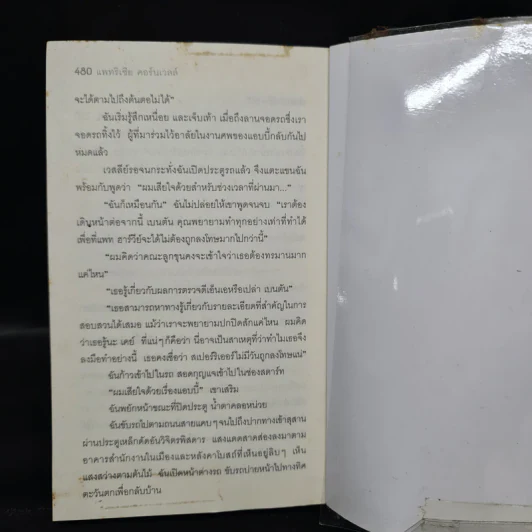 480 แพทริเซีย คอร์นเวลล์
จะได้ตามไปถึงต้นตอไม่ได้"
ฉันเริ่มรู้สึกเหนื่อย และเจ็บเท้า เมื่อถึงลานจอดรถซึ่งเรา
จอดรถทิ้งไว้ ผู้ที่มาร่วมไว้อาลัยในงานศพของแอบบี้กลับกันไป
หมดแล้ว
เวสลีย์รอจนกระทั่งฉันเปิดประตูรถแล้ว จึงแตะแขนฉัน
พร้อมกับพูดว่า "ผมเสียใจด้วยสำหรับช่วงเวลาที่ผ่านมา..."
"ฉันก็เหมือนกัน" ฉันไม่ปล่อยให้เขาพูดจนจบ "เราต้อง
เดินหน้าต่อจากนี้ เบนตัน คุณพยายามทำทุกอย่างเท่าที่ทำได้
เพื่อที่แพท ฮาร์วีย์จะได้ไม่ต้องถูกลงโทษมากไปกว่านี้"
"ผมคิดว่าคณะลูกขุนคงจะเข้าใจว่าเธอต้องทรมานมาก
แค่ไหน"
"เธอรู้เกี่ยวกับผลการตรวจดีเอ็นเอหรือเปล่า เบนตัน"
"เธอสามารถหาทางรู้เกี่ยวกับรายละเอียดที่สำคัญในการ
สอบสวนได้เสมอ แม้ว่าเราจะพยายามปกปิดสักแค่ไหน ผมคิด
ว่าเธอรู้นะ เคย์ ที่แน่ๆ ก็คือว่า นี่อาจเป็นสาเหตุที่ว่าทำไมเธอจึง
ลงมือทำอย่างนี้ เธอคงเชื่อว่า สเปอร์ริเออร์ไม่มีวันถูกลงโทษแน่"
ฉันก้าวเข้าไปในรถ สอดกุญแจเข้าไปในช่องสตาร์ท
"ผมเสียใจด้วยเรื่องแอบบี้" เขาเสริม
ฉันพยักหน้าขณะที่ปิดประตู น้ำตาคลอหน่วย
ฉันขับรถไปตามถนนสายแคบๆ จนไปถึงปากทางเข้าสุสาน
ผ่านประตูเหล็กดัดอันวิจิตรพิสดาร แสงแดดสาดส่องลงมาตาม
อาคารสำนักงานในเมืองและหลังคาโบสถ์ที่เห็นอยู่ลิบๆ เห็น
แสงสว่างตามต้นไม้ ฉันเปิดหน้าต่างรถ ขับรถบ่ายหน้าไปทางทิศ
ตะวันตกเพื่อกลับบ้าน